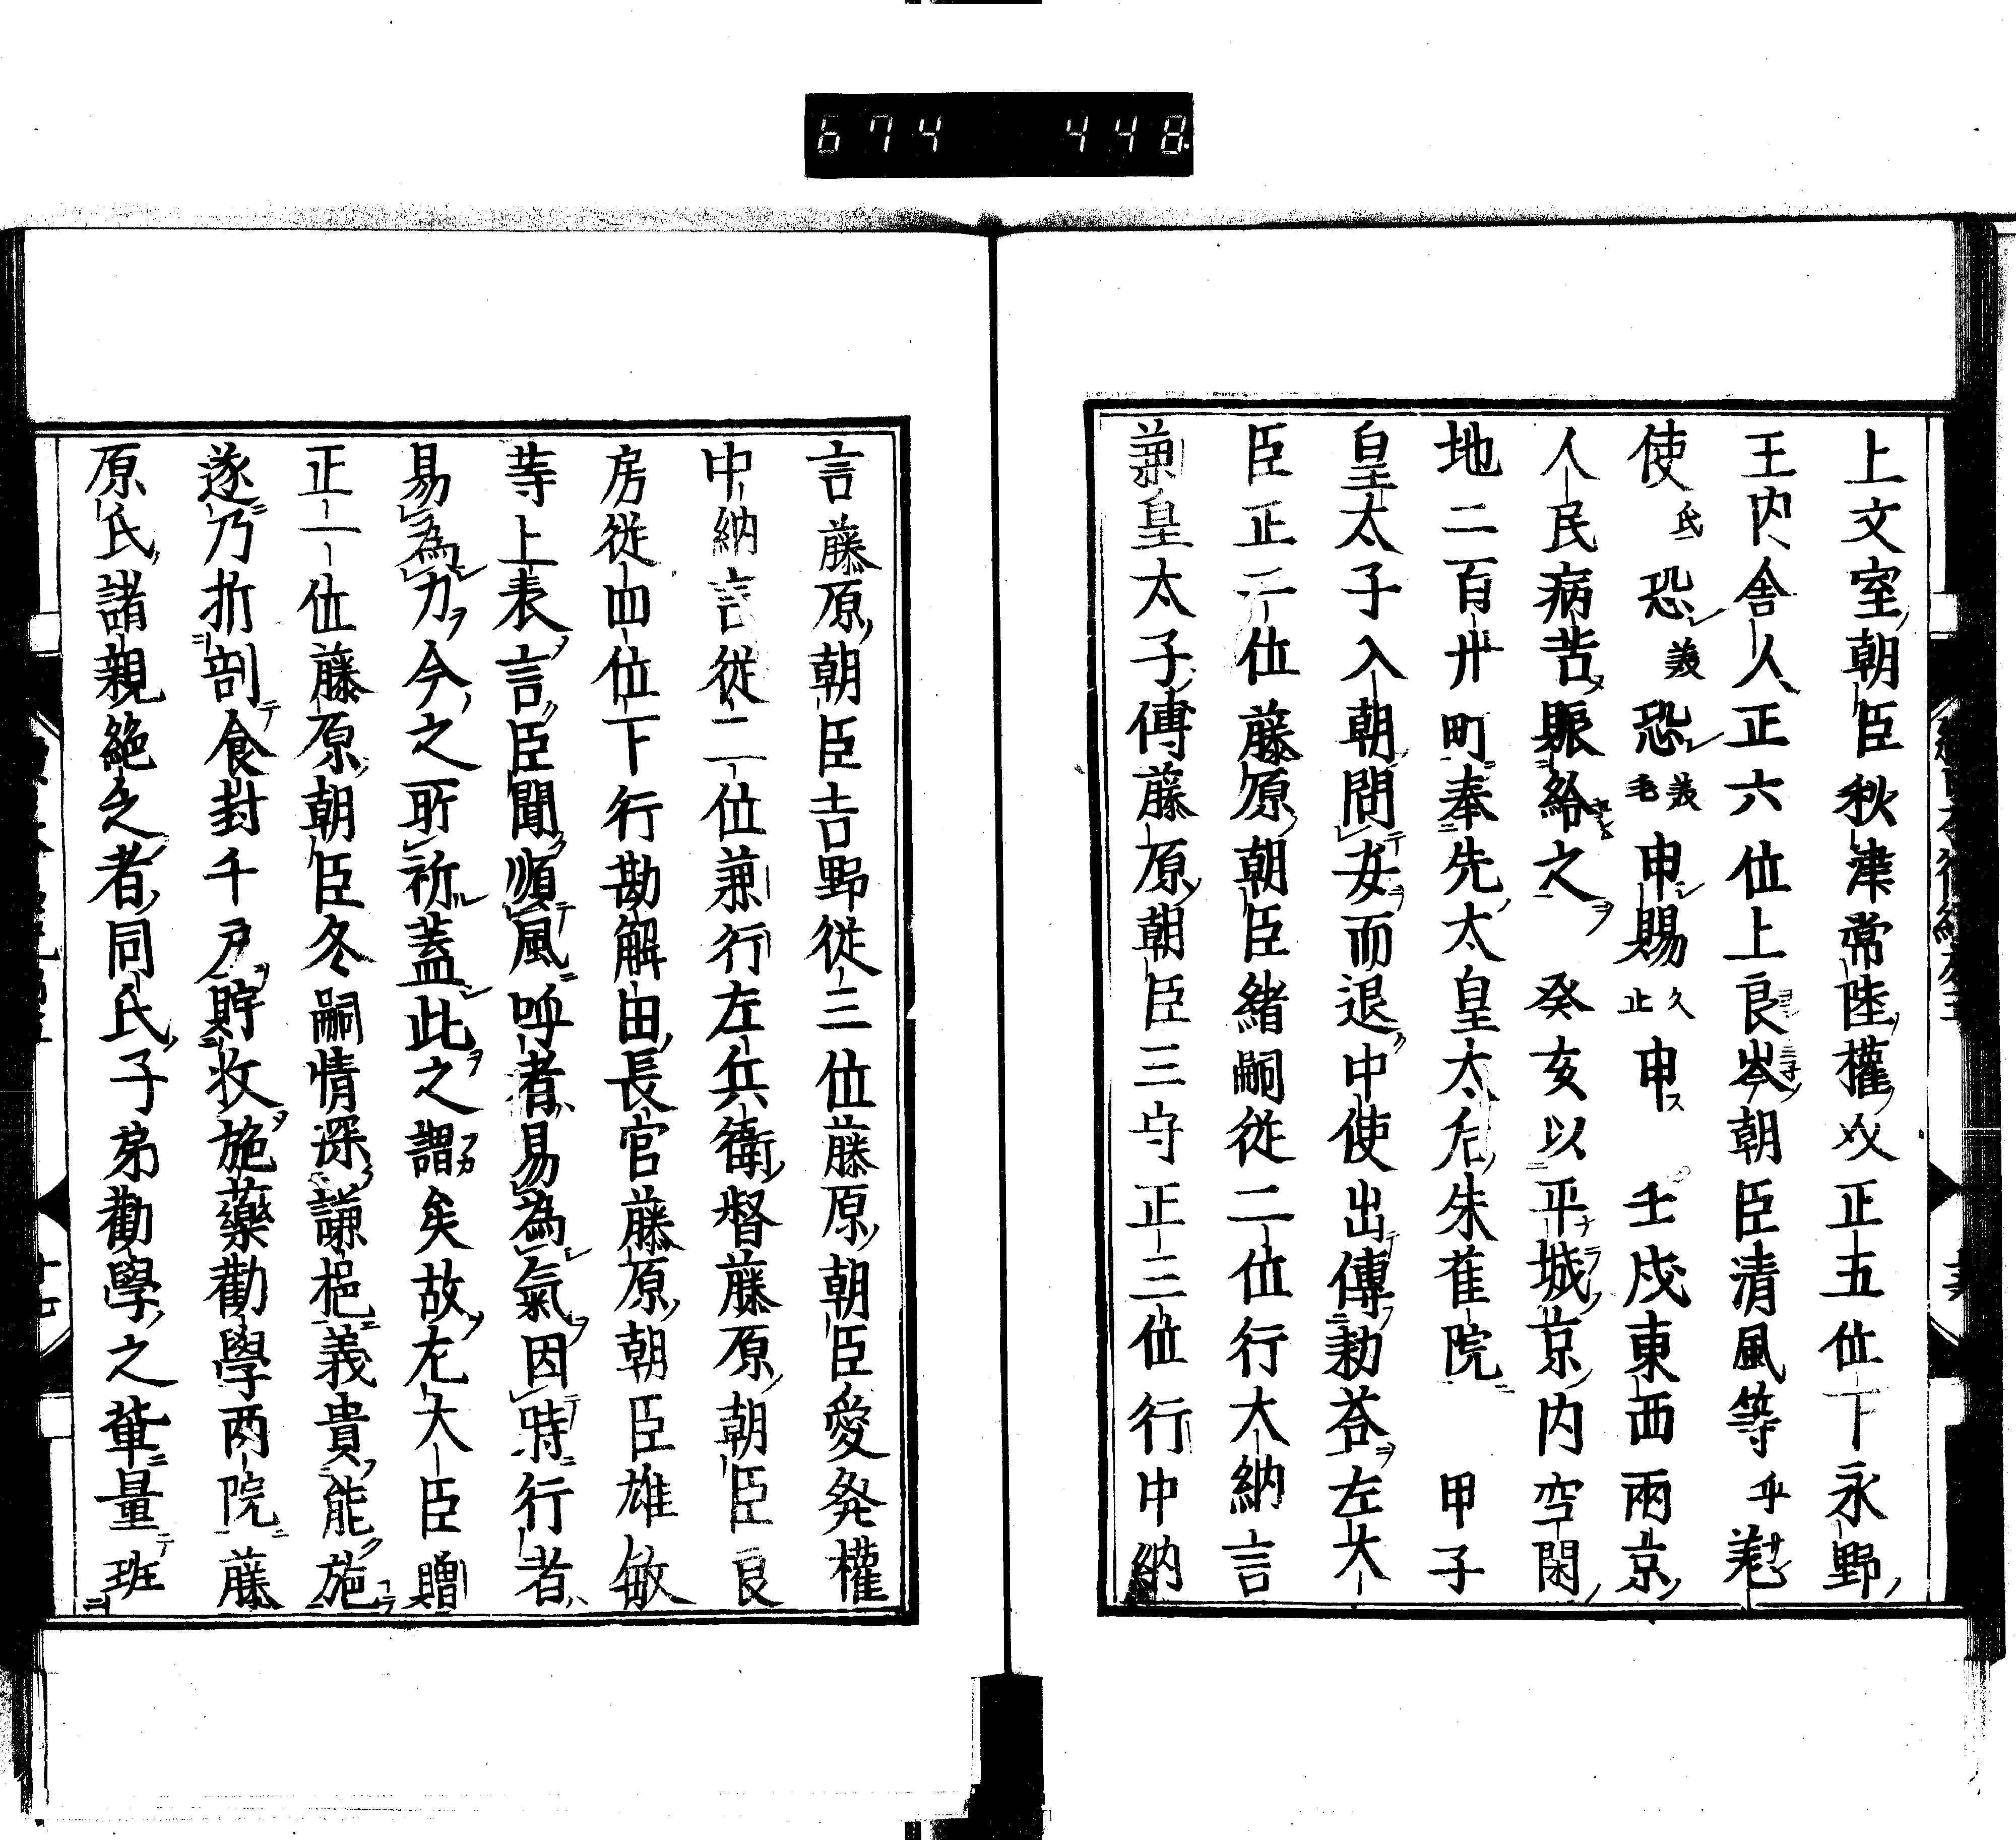 674 448
上文室朝臣秋津常陸權介正五位下永野
王内舎人正六位上良岑朝臣清風等乎差
使氐恐美恐美毛申賜久止申 壬戌東西兩京
人民病苦賑給之 癸亥以平城京内空閑
地二百卅町奉先太皇太后朱雀院 甲子
皇太子入朝問安而退中使出傳勅荅左大
臣正二位藤原朝臣緒嗣從二位行大納言
兼皇太子傅藤原朝臣三守正三位行中納
言藤原朝臣吉野從三位藤原朝臣愛発權
中納言從二位兼行左兵衛督藤原朝臣良
房從四位下行勘解由長官藤原朝臣雄敏
等上表言臣聞順風呼者易為氣因時行者
易為力今之所祈蓋此之謂矣故左大臣贈
正一位藤原朝臣冬嗣情深謙挹義貴能施
遂乃折割食封千戸貯收施藥勸學两院藤
原氏諸親絶乏者同氏子弟勸學之輩量班